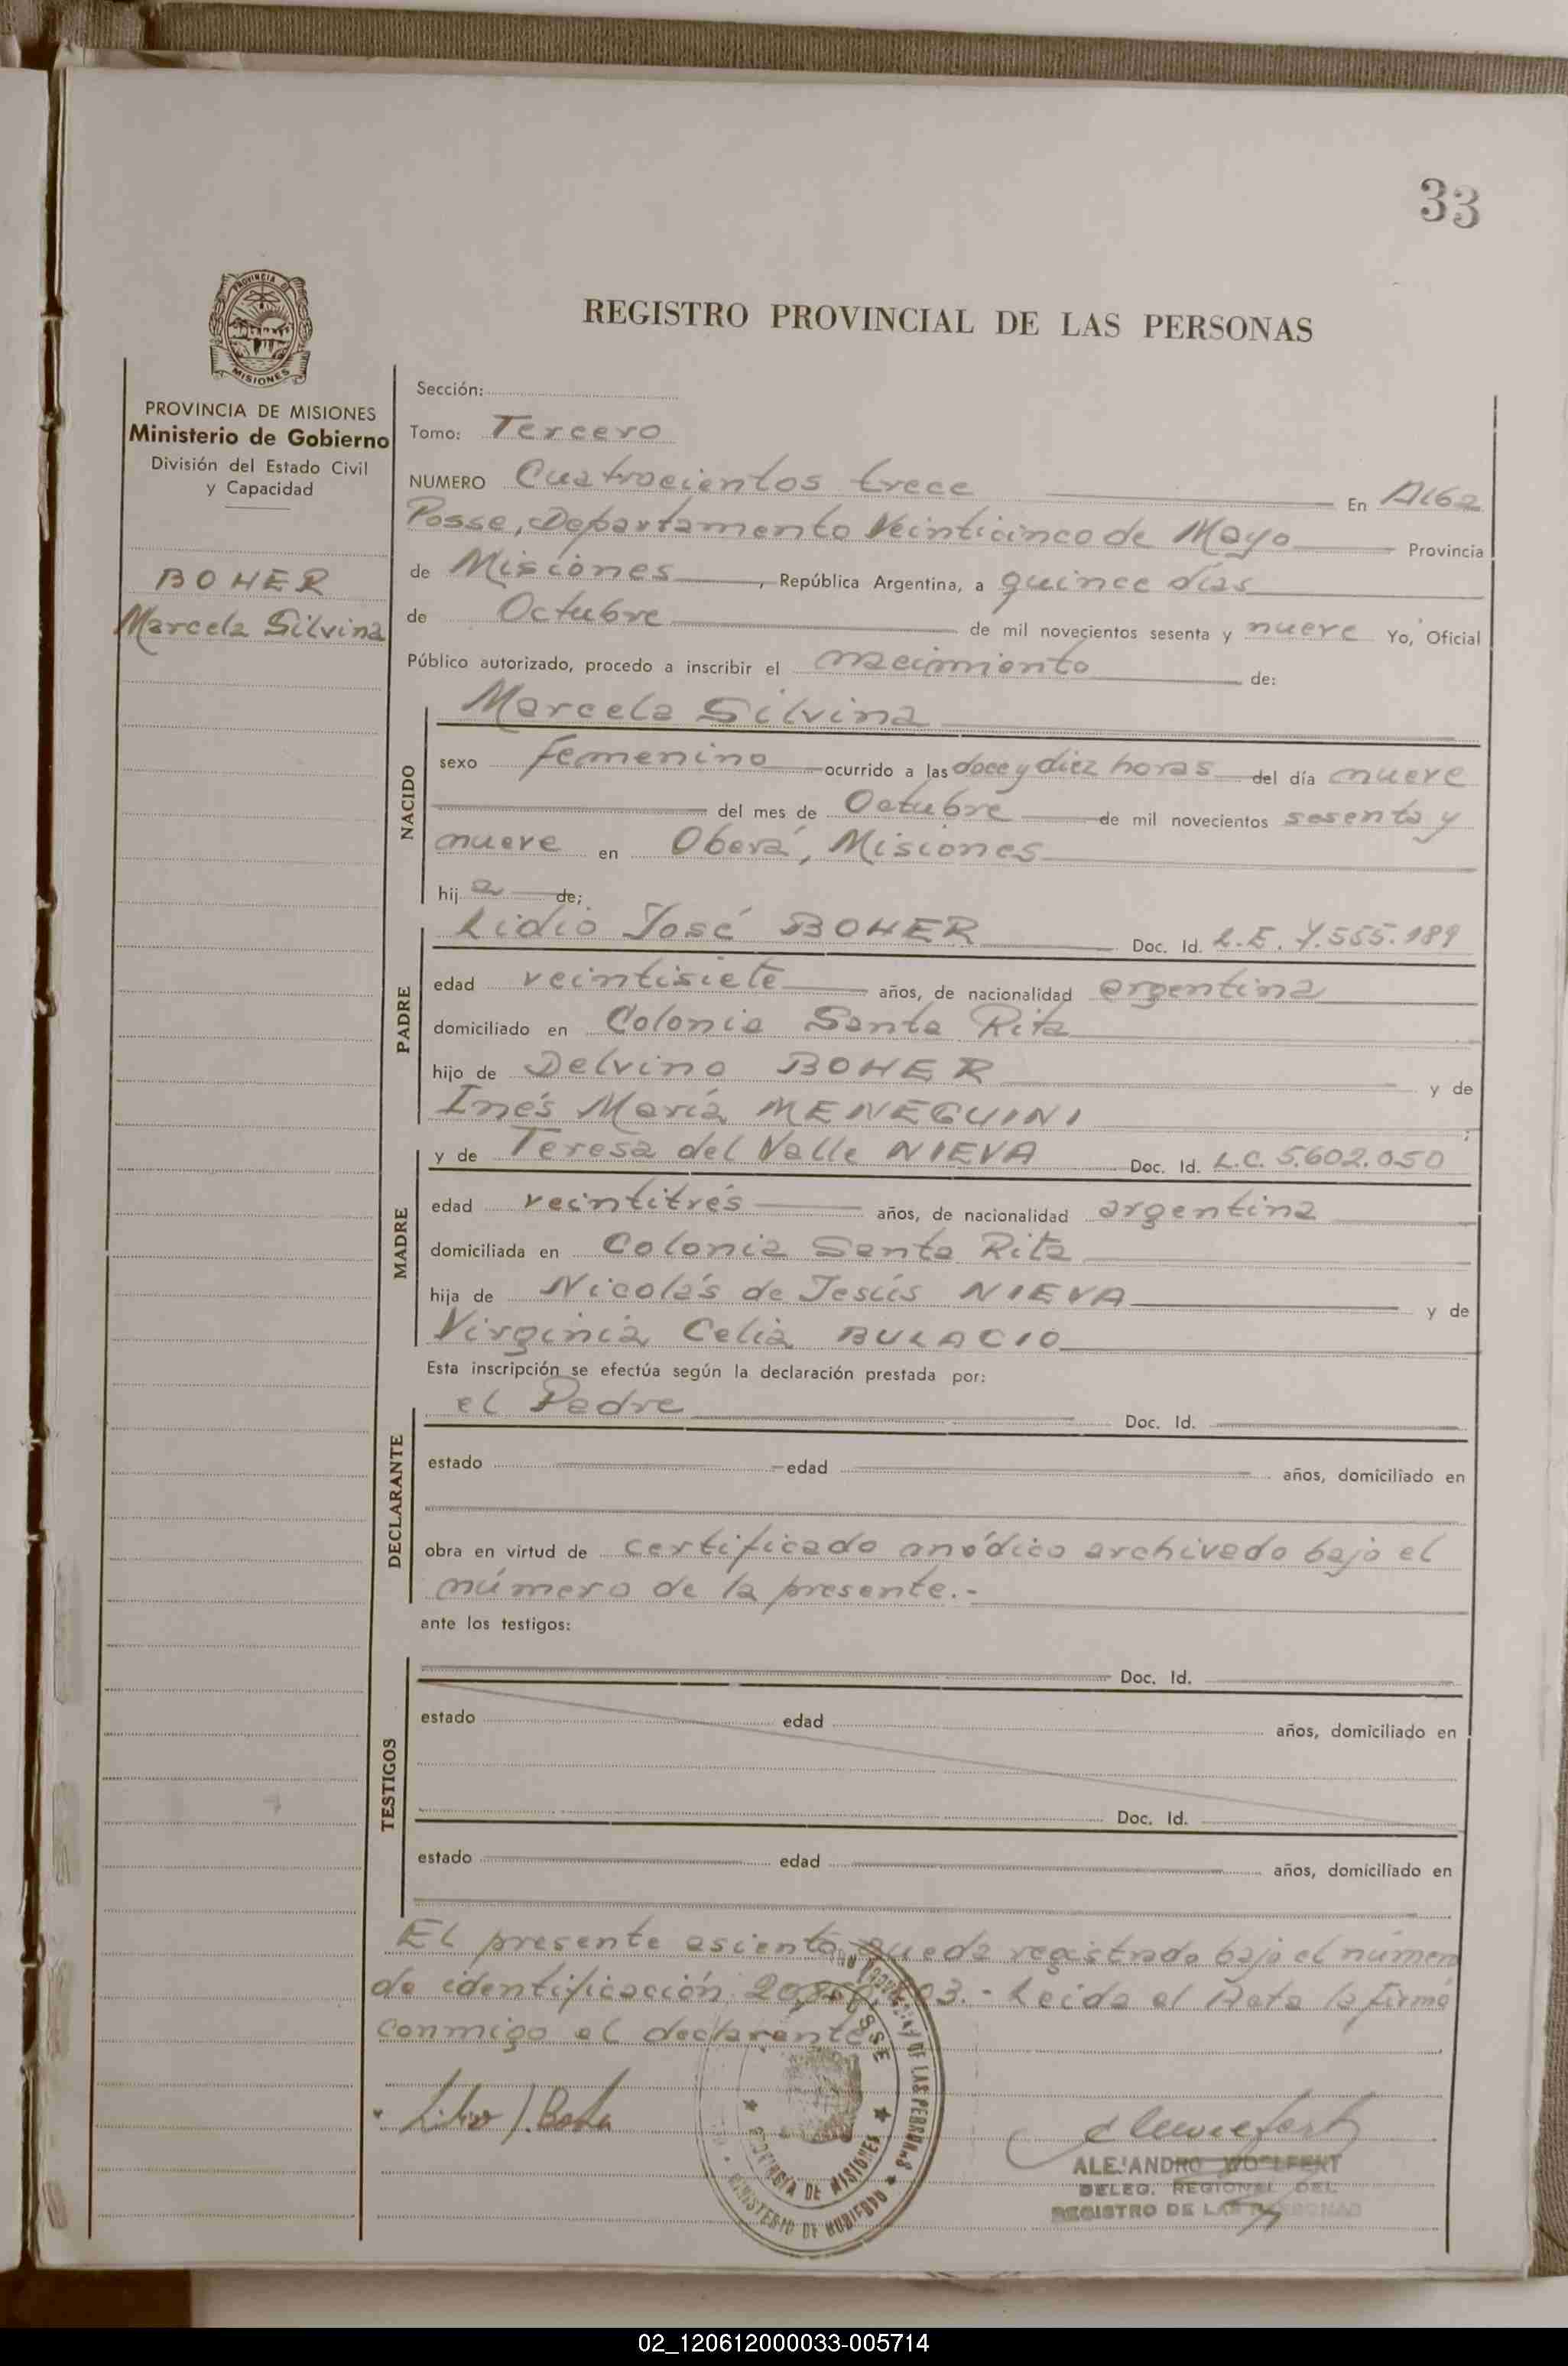 33
PROVINCIA DE
MISIONES
REGISTRO PROVINCIAL DE LAS PERSONAS
PROVINCIA DE MISIONES
Ministerio de Gobierno
División del Estado Civil
y Capacidad
BOHER
Marcela Silvina
Sección:
Tomo: Tercero
NUMERO Cuatrocientos trece En Alba
Posse, Departamento Veinticinco de Mayo Provincia
de Misiones, República Argentina, a quince días
de Octubre de mil novecientos sesenta y nueve Yo, Oficial
Público autorizado, procedo a inscribir el nacimiento de:
NACIDO
Marcela Silvina
sexo femenino ocurrido a las doce y diez horas del día nueve
del mes de Octubre de mil novecientos sesenta y
nueve en Oberá, Misiones
hij a de;
PADRE
Lidio José BOHER Doc. Id. L.E. 7.555.189
edad veintisiete años, de nacionalidad argentina
domiciliado en Colonia Santa Rita
hijo de Delvino BOHER y de
Inés María MENEGUINI ;
MADRE
y de Teresa del Valle NIEVA Doc. Id. L.C. 5.602.050
edad veintitrés años, de nacionalidad argentina
domiciliada en Colonia Santa Rita
hija de Nicolás de Jesús NIEVA y de
Virginia Celia BULACIO
Esta inscripción se efectúa según la declaración prestada por:
DECLARANTE
el Padre Doc. Id.
estado edad años, domiciliado en
obra en virtud de certificado médico archivado bajo el
número de la presente.-
ante los testigos:
TESTIGOS
Doc. Id.
estado edad años, domiciliado en
Doc. Id.
estado edad años, domiciliado en
El presente asiento queda registrado bajo el número
de identificación 03.- Leida el Acta la firma
conmigo el declarante
DE LAS PERSONAS
POSSE
PROVINCIA DE MISIONES
MINISTERIO DE GOBIERNO
ALEJANDRO WOLFERT
DELEG. REGIONAL DEL
REGISTRO DE LAS PERSONAS
02_120612000033-005714